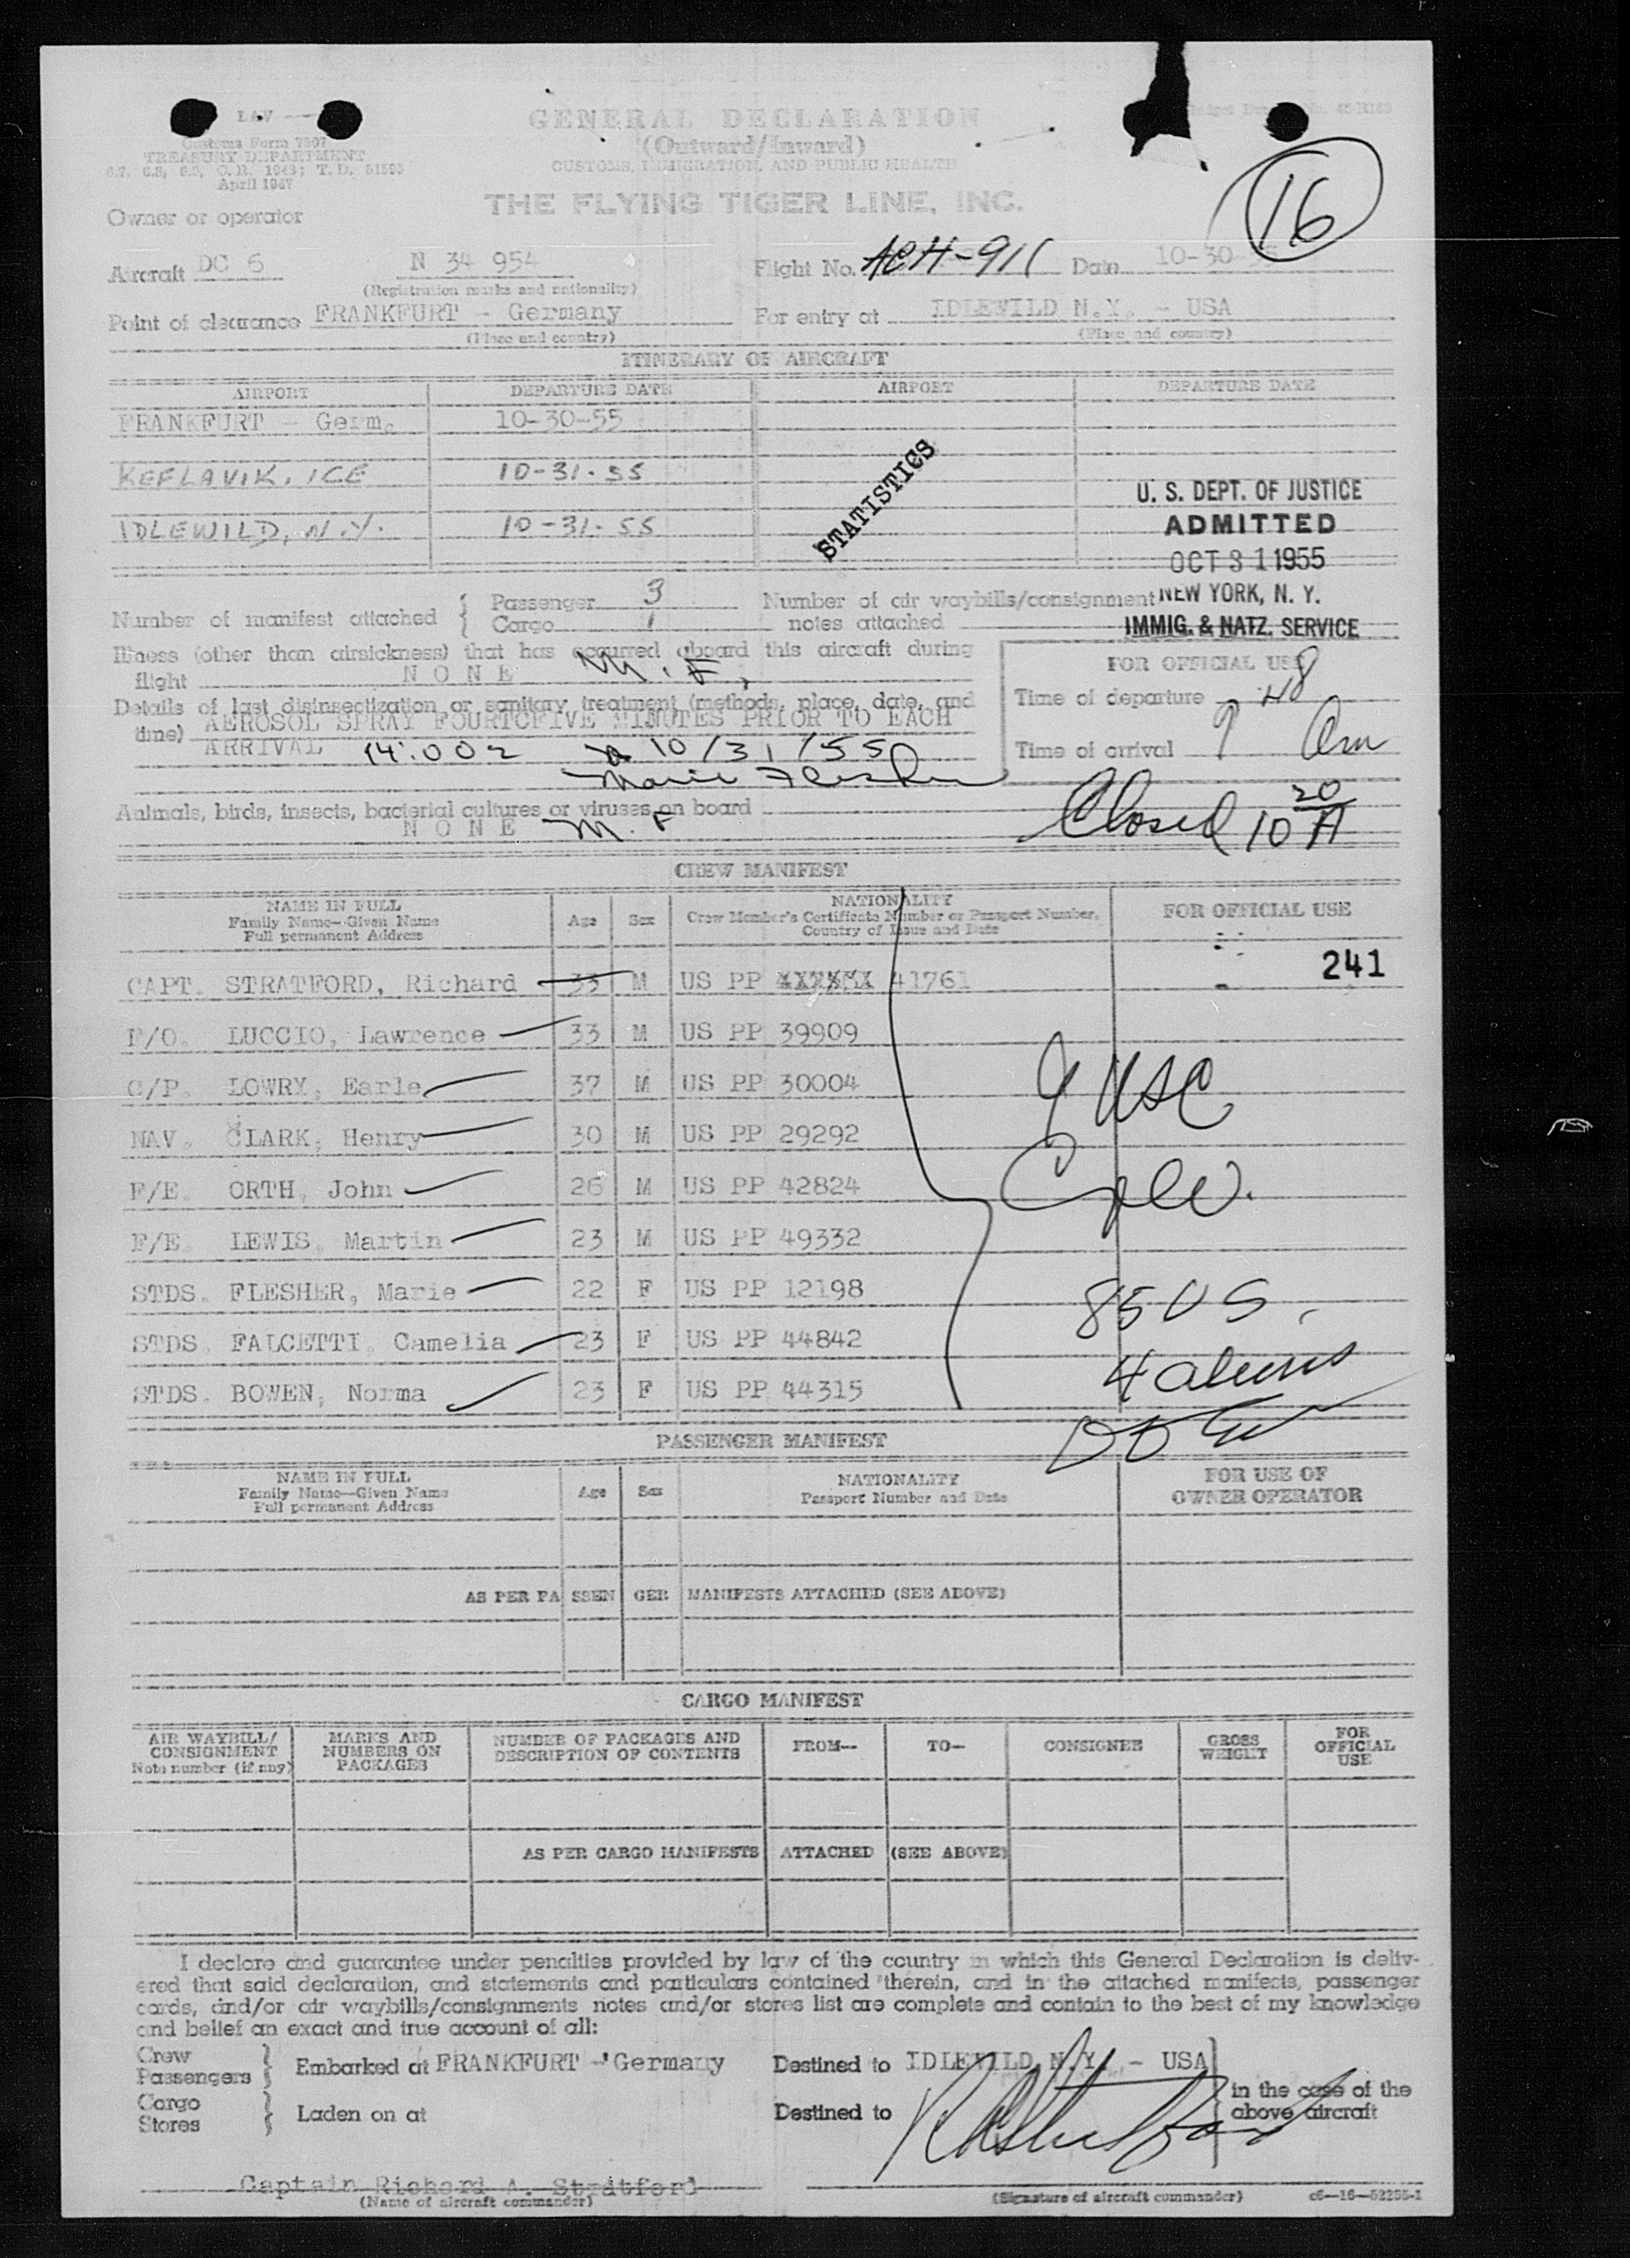 LAV
Customs Form 7507
TREASURY DEPARTMENT
April 1947
GENERAL DECLARATION
(Outward/Inward)
CUSTOMS, IMMIGRATION, AND PUBLIC HEALTH
THE FLYING TIGER LINE, INC.
16
Owner or operator
Aircraft DC 6 N 34 954 Flight No. ACH-911 Date 10-30
(Registration marks and nationality)
Point of clearance FRANKFURT - Germany For entry at IDLEWILD N.Y. - USA
(Place and country) (Place and country)
ITINERARY OF AIRCRAFT
AIRPORT DEPARTURE DATE AIRPORT DEPARTURE DATE
FRANKFURT - Germ. 10-30-55
KEFLAVIK, ICE 10-31-55
IDLEWILD, N.Y. 10-31-55
STATISTICS
U. S. DEPT. OF JUSTICE
ADMITTED
OCT 31 1955
NEW YORK, N. Y.
IMMIG. & NATZ. SERVICE
Number of manifest attached { Passenger 3 Number of air waybills/consignment
Cargo 1 notes attached
Illness (other than airsickness) that has occurred aboard this aircraft during
flight N O N E M. F.
FOR OFFICIAL USE
Details of last disinsectization or sanitary treatment (methods, place, date, and
time) AEROSOL SPRAY FOURTCFIVE MINUTES PRIOR TO EACH
ARRIVAL 14:00z 10/31/55
Marie Flesher
Time of departure
Time of arrival 9 48 Am
Animals, birds, insects, bacterial cultures or viruses on board
N O N E M. F
Closed 10 20 A
CREW MANIFEST
NAME IN FULL
Family Name—Given Name
Full permanent Address
Age Sex
NATIONALITY
Crew Member's Certificate Number or Passport Number,
Country of Issue and Date
FOR OFFICIAL USE
241
CAPT. STRATFORD, Richard 33 M US PP 41761
F/O. LUCCIO, Lawrence 33 M US PP 39909
C/P. LOWRY, Earle 37 M US PP 30004
NAV. CLARK, Henry 30 M US PP 29292
F/E. ORTH, John 26 M US PP 42824
F/E. LEWIS, Martin 23 M US PP 49332
STDS. FLESHER, Marie 22 F US PP 12198
STDS. FALCETTI, Camelia 23 F US PP 44842
STDS. BOWEN, Norma 23 F US PP 44315
9 USC
Crew.
85 US,
4 aliens
PASSENGER MANIFEST
NAME IN FULL
Family Name—Given Name
Full permanent Address
Age Sex
NATIONALITY
Passport Number and Date
FOR USE OF
OWNER OPERATOR
AS PER PASSENGER MANIFESTS ATTACHED (SEE ABOVE)
CARGO MANIFEST
AIR WAYBILL/
CONSIGNMENT
Note number (if any)
MARKS AND
NUMBERS ON
PACKAGES
NUMBER OF PACKAGES AND
DESCRIPTION OF CONTENTS
FROM— TO— CONSIGNEE
GROSS
WEIGHT
FOR
OFFICIAL
USE
AS PER CARGO MANIFESTS ATTACHED (SEE ABOVE)
I declare and guarantee under penalties provided by law of the country in which this General Declaration is deliv-
ered that said declaration, and statements and particulars contained therein, and in the attached manifests, passenger
cards, and/or air waybills/consignments notes and/or stores list are complete and contain to the best of my knowledge
and belief an exact and true account of all:
Crew
Passengers } Embarked at FRANKFURT - Germany Destined to IDLEWILD N.Y. - USA
in the case of the
above aircraft
Cargo
Stores } Laden on at Destined to
RAStratford
Captain Richard A. Stratford
(Name of aircraft commander) (Signature of aircraft commander) c6—16—52255-1